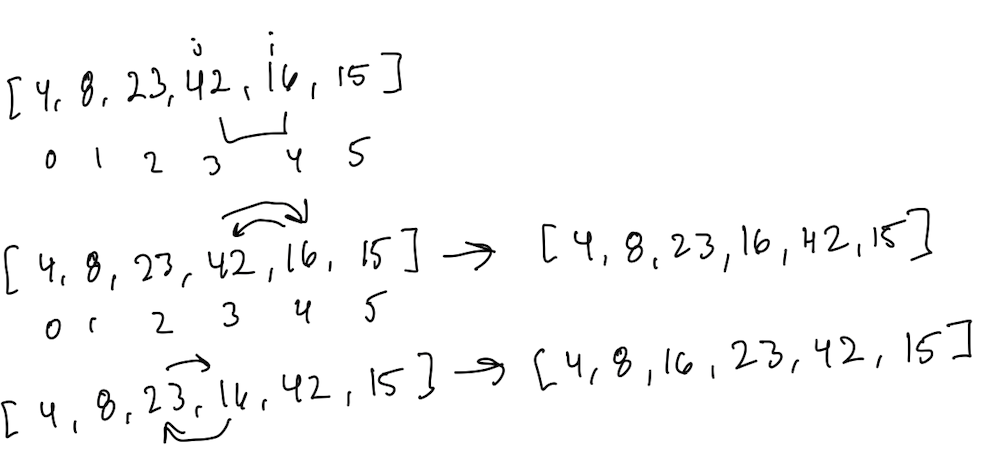 j i
[4, 8, 23, 42, 16, 15]
0 1 2 3 4 5
[4, 8, 23, 42, 16, 15] → [4, 8, 23, 16, 42, 15]
0 1 2 3 4 5
[4, 8, 23, 16, 42, 15] → [4, 8, 16, 23, 42, 15]